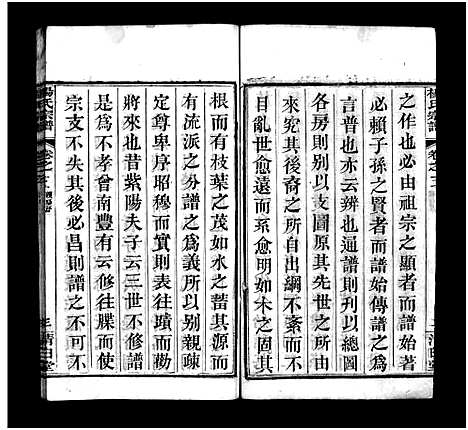 楊氏宗譜
卷之二
清白堂
之作也必由祖宗之顯者而譜始作
必賴子孫之賢者而譜始傳譜之爲
言普也亦云辨也通譜則列以總圖
各房則別以支圖原其先世之所自
來究其後裔之所自出綱不紊而不
目亂世愈遠而系愈明如木之固其
根而有枝葉之茂如水之蓄其源而
有流派之分譜之爲義所以別親疎
定尊卑序昭穆而實則表往蹟而勸
將來也昔紫陽夫子云三世不修譜
則爲不孝曾南豐有云修往牒而使
宗支不失其後必昌則譜之不可不
楊氏宗譜
卷之二
清白堂